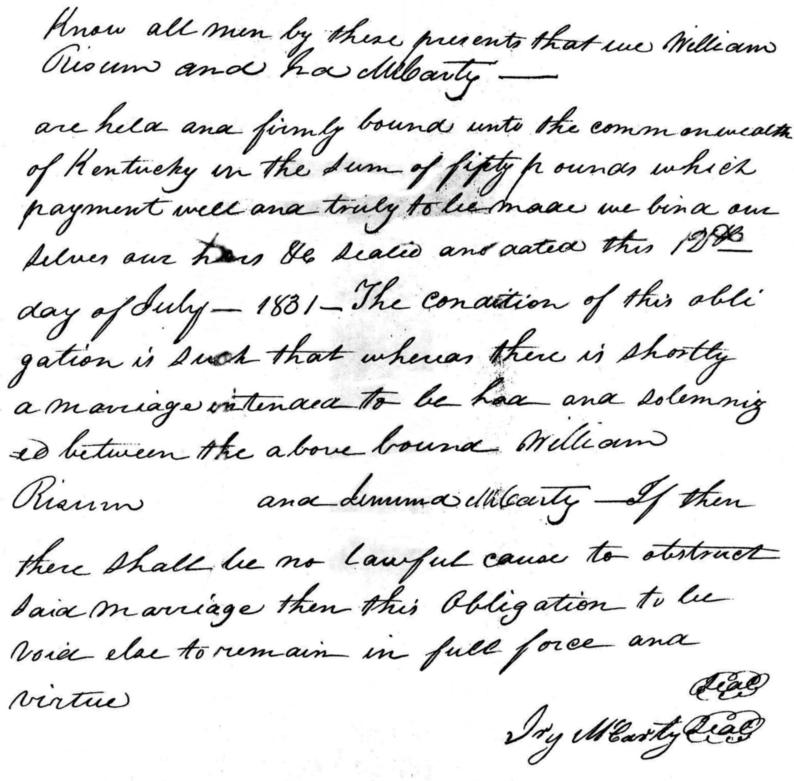 Know all men by these presents that we William
Risum and Ira McCarty —
are held and firmly bound unto the commonwealth
of Kentucky in the sum of fifty pounds which
payment well and truly to be made we bind our
selves our heirs &c sealed and dated this 12th
day of July — 1831 — The condition of this obli
gation is such that whereas there is shortly
a marriage intended to be had and solemniz
ed between the above bound William
Risum and Jemima McCarty — If then
there shall be no lawful cause to obstruct
said marriage then this Obligation to be
void else to remain in full force and
virtue
Seal
Iry McCarty Seal